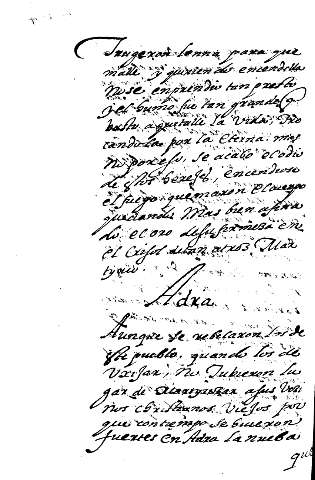 Trugeron lenna para que
malle y quiriendo encendella
no se emprendio tan presto
y el humo fue tan grande q
basto a quitalle la vida, tro
candola por la eterna: mas
no por eso, se acabo el odio
de los hereges, encendiose
el fuego, quemaron el cuerpo
quedando mas bien afina
do el oro de su firmeza en
el crisol de tan atros Mar
tyrio.
Adra
Aunque se rebelaron los de
este pueblo, quando los de
Vxixar, no tubieron lu
gar de Martyrizar a sus Vezi
nos christianos viejos por
que con tiempo se hizieron
fuertes en Adra la nueba
que